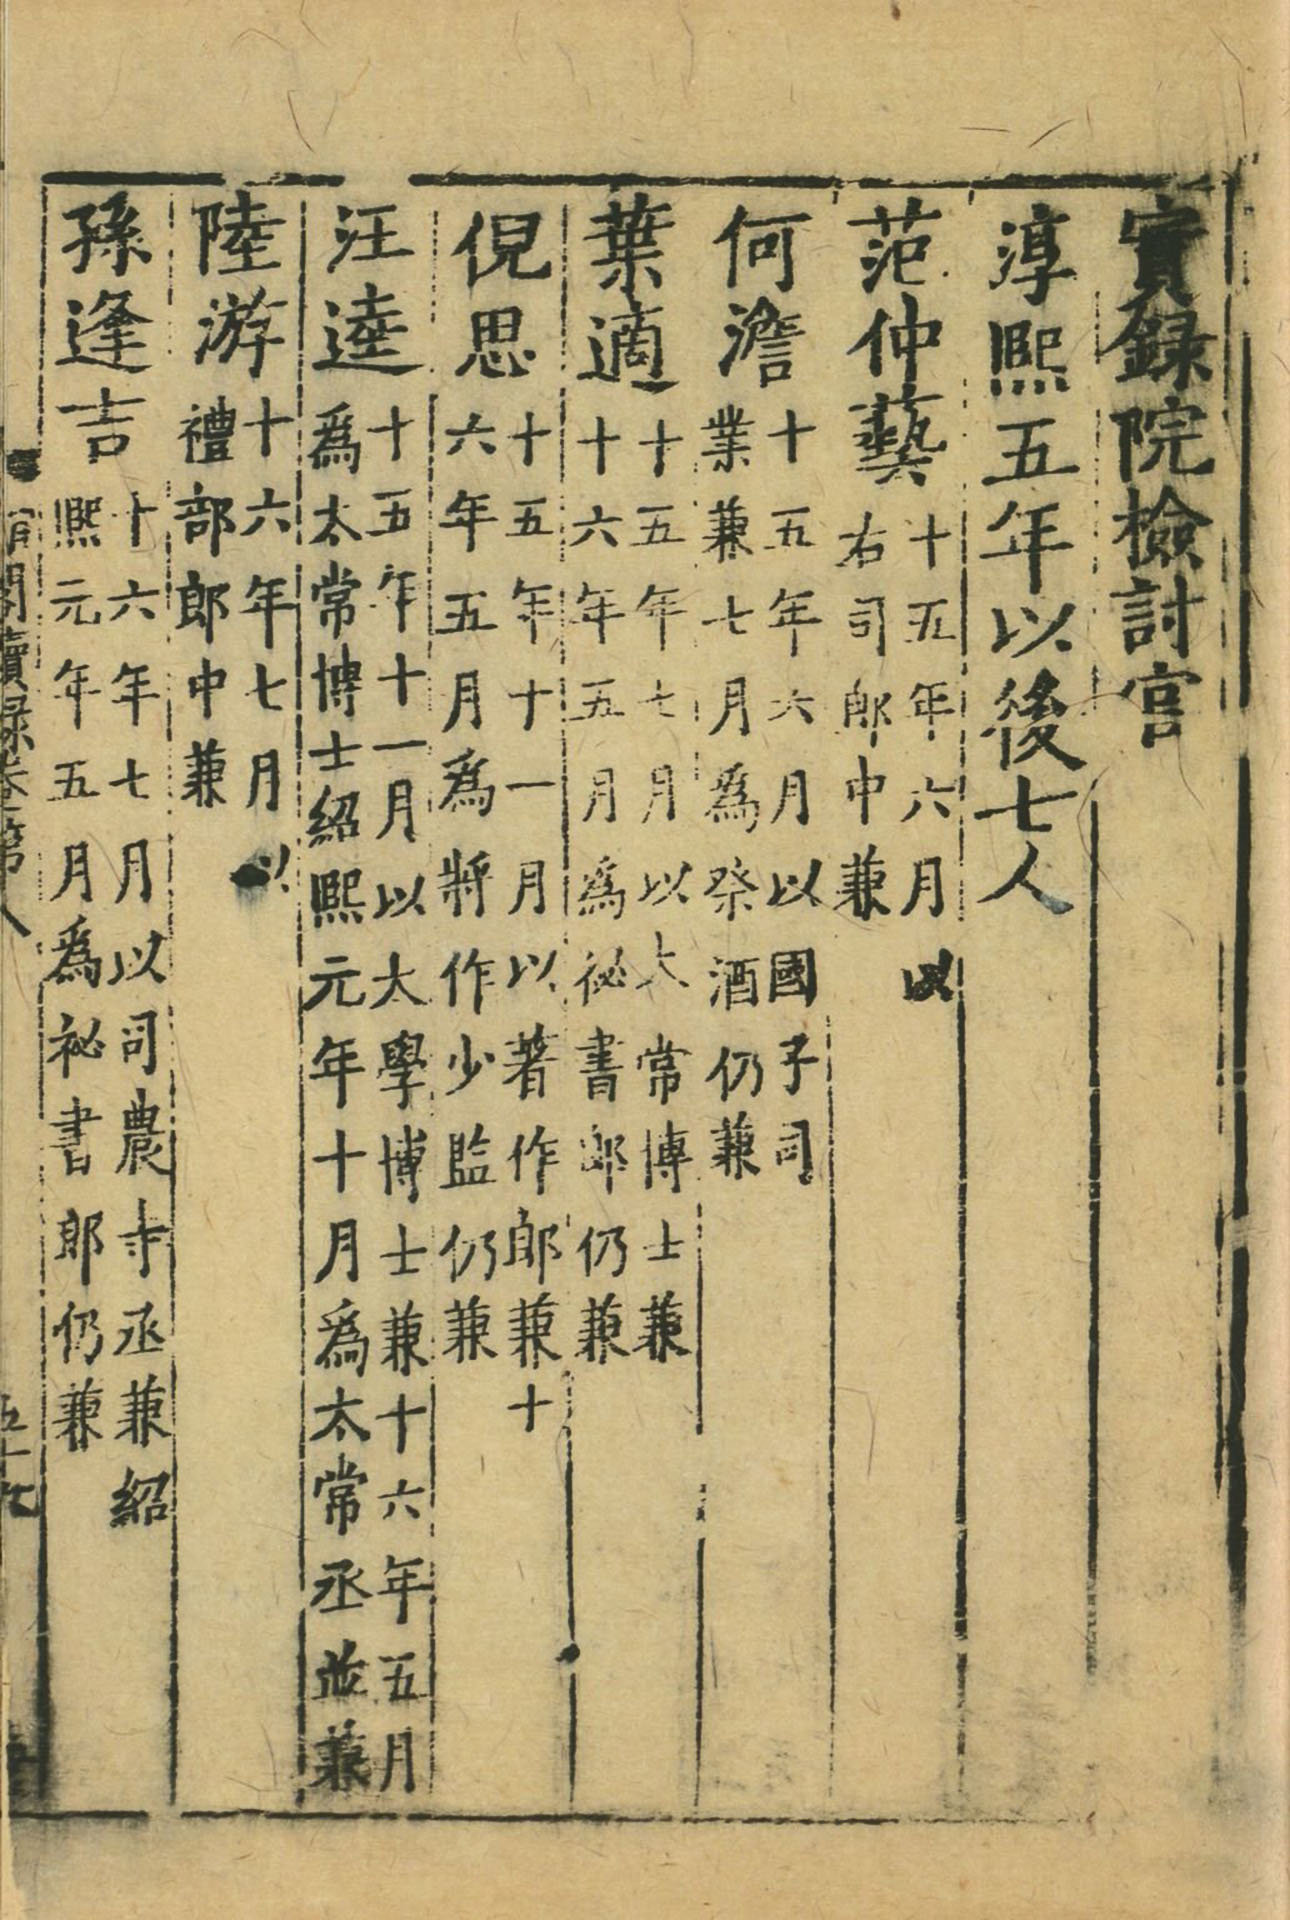 實録院檢討官
淳熙五年以後七人
范仲藝十五年六月以右司郎中兼
何澹十五年六月以國子司業兼七月爲祭酒仍兼
葉適十五年七月以太常博士兼十六年五月爲祕書郎仍兼
倪思十五年十一月以著作郎兼十六年五月爲將作少監仍兼
汪逵十五年十一月以太學博士兼十六年五月爲太常博士紹熙元年十月爲太常丞並兼
陸游十六年七月以禮部郎中兼
孫逢吉十六年七月以司農寺丞兼紹熙元年五月爲祕書郎仍兼
閣續録卷第八
五十九